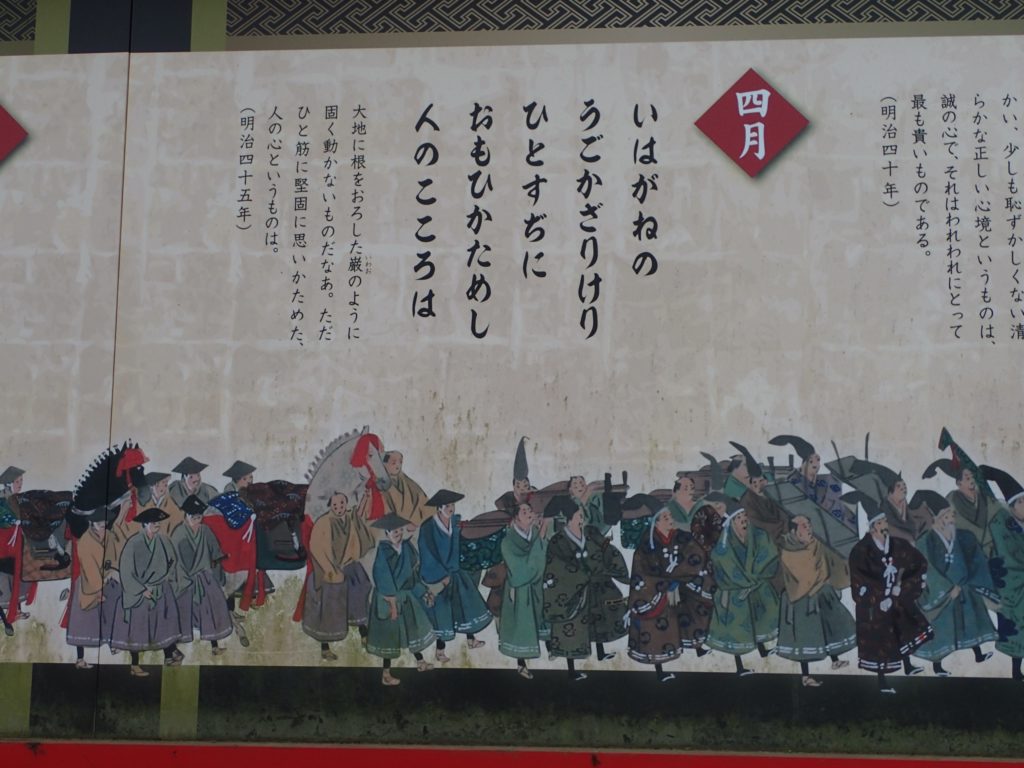 かい、少しも恥ずかしくない清
らかな正しい心境というものは、
誠の心で、それはわれわれにとって
最も貴いものである。
（明治四十年）
四月
いはがねの
うごかざりけり
ひとすぢに
おもひかためし
人のこころは
大地に根をおろした巌のように
いわお
固く動かないものだなあ。ただ
ひと筋に堅固に思いかためた、
人の心というものは。
（明治四十五年）